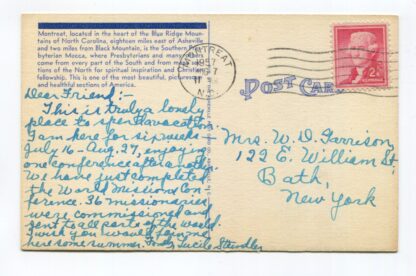 Montreat, located in the heart of the Blue Ridge Moun-
tains of North Carolina, eighteen miles east of Asheville
and two miles from Black Mountain, is the Southern Pres-
byterian Mecca, where Presbyterians and many others
come from every part of the South and from many
tions of the North for spiritual inspiration and Christian
fellowship. This is one of the most beautiful, picturesque
and healthful sections of America.
MONTREAT
1957
N.C.
2¢
POST CARD
Dear Friend:-
This is truly a lovely
place to spend a vacation.
I am here for six weeks
July 16 - Aug. 27, enjoying
one conference after another.
We have just completed
the World Missions Con-
ference. 36 missionaries
were commissioned and
sent to all parts of the world.
I wish you would join me
here some summer. Lucile
Mrs. W. D. Garrison
122 E. William St.
Bath,
New York